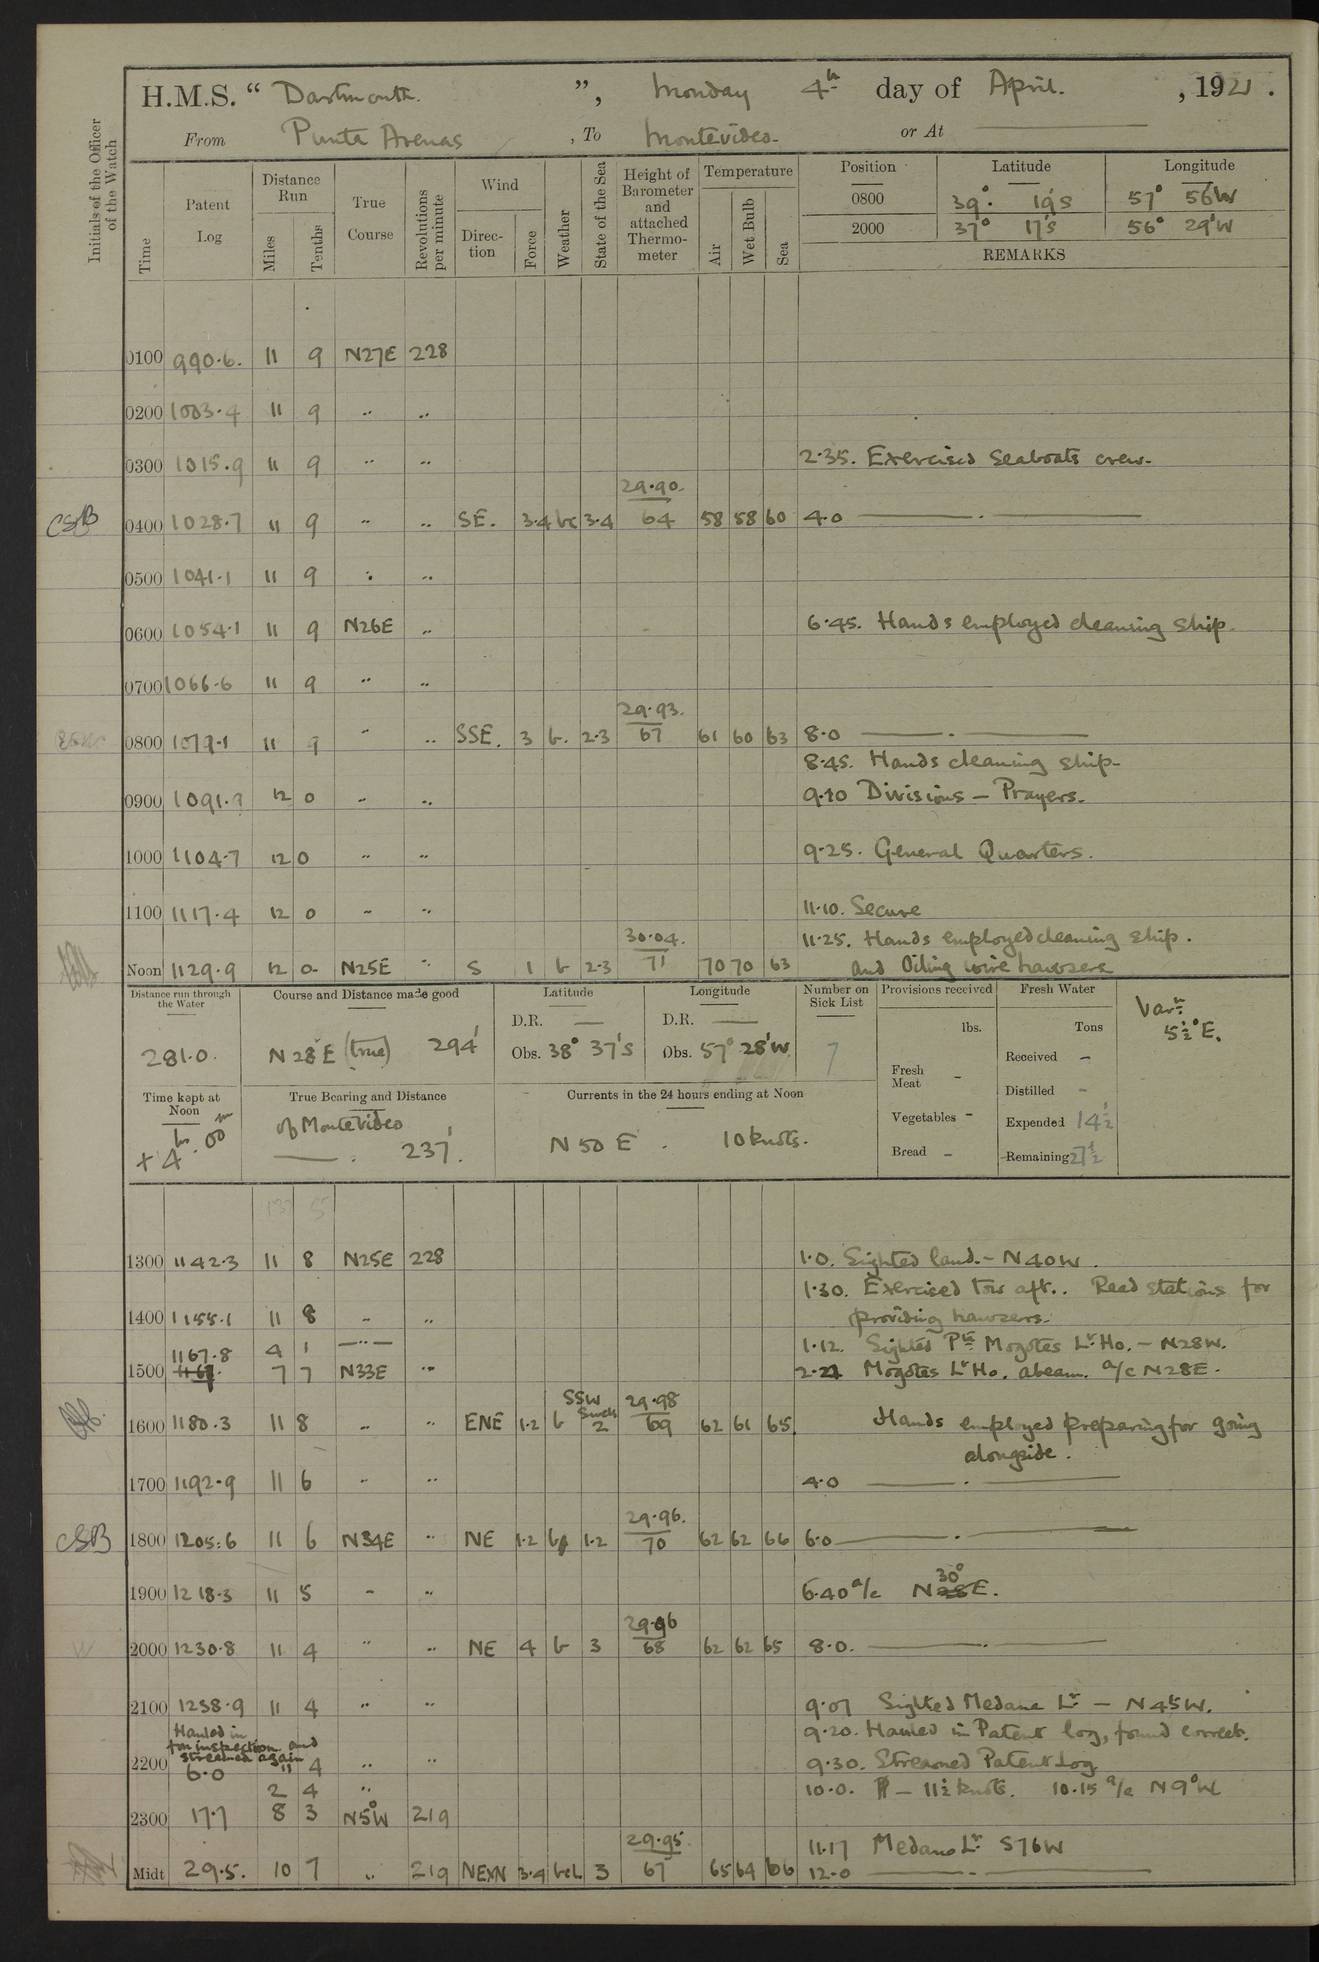 H.M.S. “ Dartmouth. ”, Monday 4th day of April. , 1921 .
From Punta Arenas , To Montevideo. or At ———
Initials of the Officer of the Watch
Time
Patent Log
Distance Run
Miles
Tenths
True Course
Revolutions per minute
Wind
Direction
Force
Weather
State of the Sea
Height of Barometer and attached Thermometer
Temperature
Air
Wet Bulb
Sea
Position Latitude Longitude
0800 39° 19'S 57° 56'W
2000 37° 17'S 56° 29'W
REMARKS
0100 990.6. 11 9 N27E 228
0200 1003.4 11 9 " "
0300 1015.9 11 9 " " 2.35. Exercised Seaboats crew.
29.90.
CSB 0400 1028.7 11 9 " " SE. 3.4 bc 3.4 64 58 58 60 4.0 ——— . ———
0500 1041.1 11 9 " "
0600 1054.1 11 9 N26E " 6.45. Hands employed cleaning ship.
0700 1066.6 11 9 " "
29.93.
0800 1079.1 11 9 " " SSE. 3 b. 2.3 67 61 60 63 8.0 ——— . ———
8.45. Hands cleaning ship.
0900 12 0 " " 9.10 Divisions – Prayers.
1000 1104.7 12 0 " " 9.25. General Quarters.
1100 1117.4 12 0 " " 11.10. Secure
30.04. 11.25. Hands employed cleaning ship.
Noon 1129.9 12 0 N25E " S 1 b 2.3 71 70 70 63 and Oiling wire hawsers
Distance run through the Water
281.0.
Course and Distance made good
N 28° E (true) 294'
Latitude
D.R. —
Obs. 38° 37'S
Longitude
D.R. —
Obs. 57° 28'W.
Number on Sick List
7
Provisions received
lbs.
Fresh Meat –
Vegetables –
Bread –
Fresh Water
Tons
Received –
Distilled –
Expended 14½
Remaining 27½
Varn. 5½° E.
Time kept at Noon
+ 4h. 00m
True Bearing and Distance
of Montevideo
——— . 237'.
Currents in the 24 hours ending at Noon
N 50 E . 10 knots.
1300 1142.3 11 8 N25E 228 1.0. Sighted land. – N40W.
1.30. Exercised Tow aft.. Read stations for
1400 1155.1 11 8 " " providing hawsers.
1167.8 4 1 —"— 1.12. Sighted Pta Mogotes Lt. Ho. – N28W.
1500 7 7 N33E " 2.21 Mogotes Lt Ho. abeam. a/c N28E.
SSW Swell 29.98
1600 1180.3 11 8 " " ENE 1.2 b 2 69 62 61 65. Hands employed preparing for going
alongside.
1700 1192.9 11 6 " " 4.0 ——— . ———
29.96.
CSB 1800 1205.6 11 6 N34E " NE 1.2 b 1.2 70 62 62 66 6.0 ——— . ———
1900 1218.3 11 5 " " 6.40 a/c N 30° E.
29.96
2000 1230.8 11 4 " " NE 4 b 3 68 62 62 65 8.0. ——— . ———
2100 1238.9 11 4 " " 9.07 Sighted Medano Lt – N45W.
Hauled in for inspection and streamed again 9.20. Hauled in Patent log, found correct.
2200 6.0 11 4 " " 9.30. Streamed Patent Log
2 4 " 10.0. – 11½ knots. 10.15 a/c N9°W
2300 17.7 8 3 N5°W 219
29.95. 11.17 Medano Lt. S76W
Midt 29.5. 10 7 " 219 NExN 3.4 bcl 3 67 65 64 66 12.0 ——— . ———